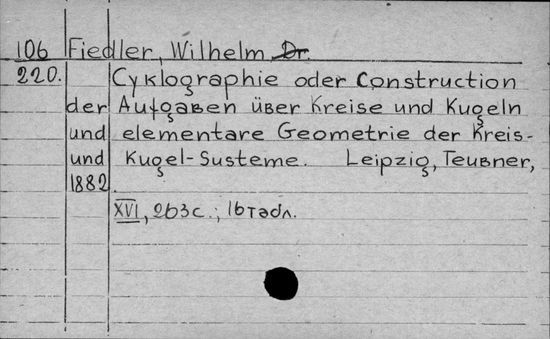 106 Fiedler, Wilhelm Dr.
220. Cyklographie oder Construction
der Aufgaben über Kreise und Kugeln
und elementare Geometrie der Kreis-
und Kugel-Systeme. Leipzig, Teubner,
1882.
XVI, 263 с.; 16 табл.